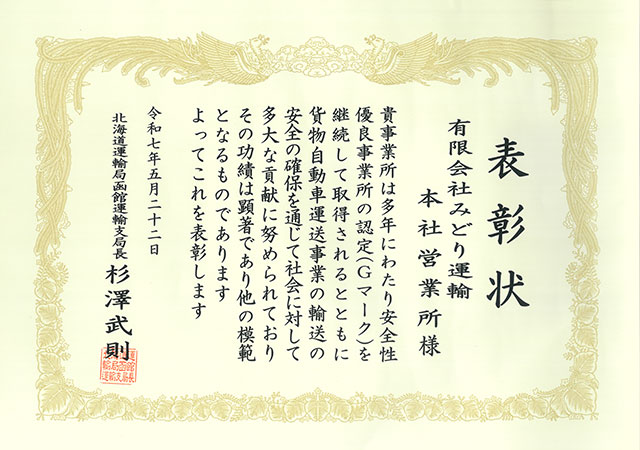 表彰状
有限会社みどり運輸
本社営業所様
貴事業所は多年にわたり安全性
優良事業所の認定(Gマーク)を
継続して取得されるとともに
貨物自動車運送事業の輸送の
安全の確保を通じて社会に対して
多大な貢献に努められており
その功績は顕著であり他の模範
となるものであります
よってこれを表彰します
令和七年五月二十二日
北海道運輸局函館運輸支局長 杉澤武則